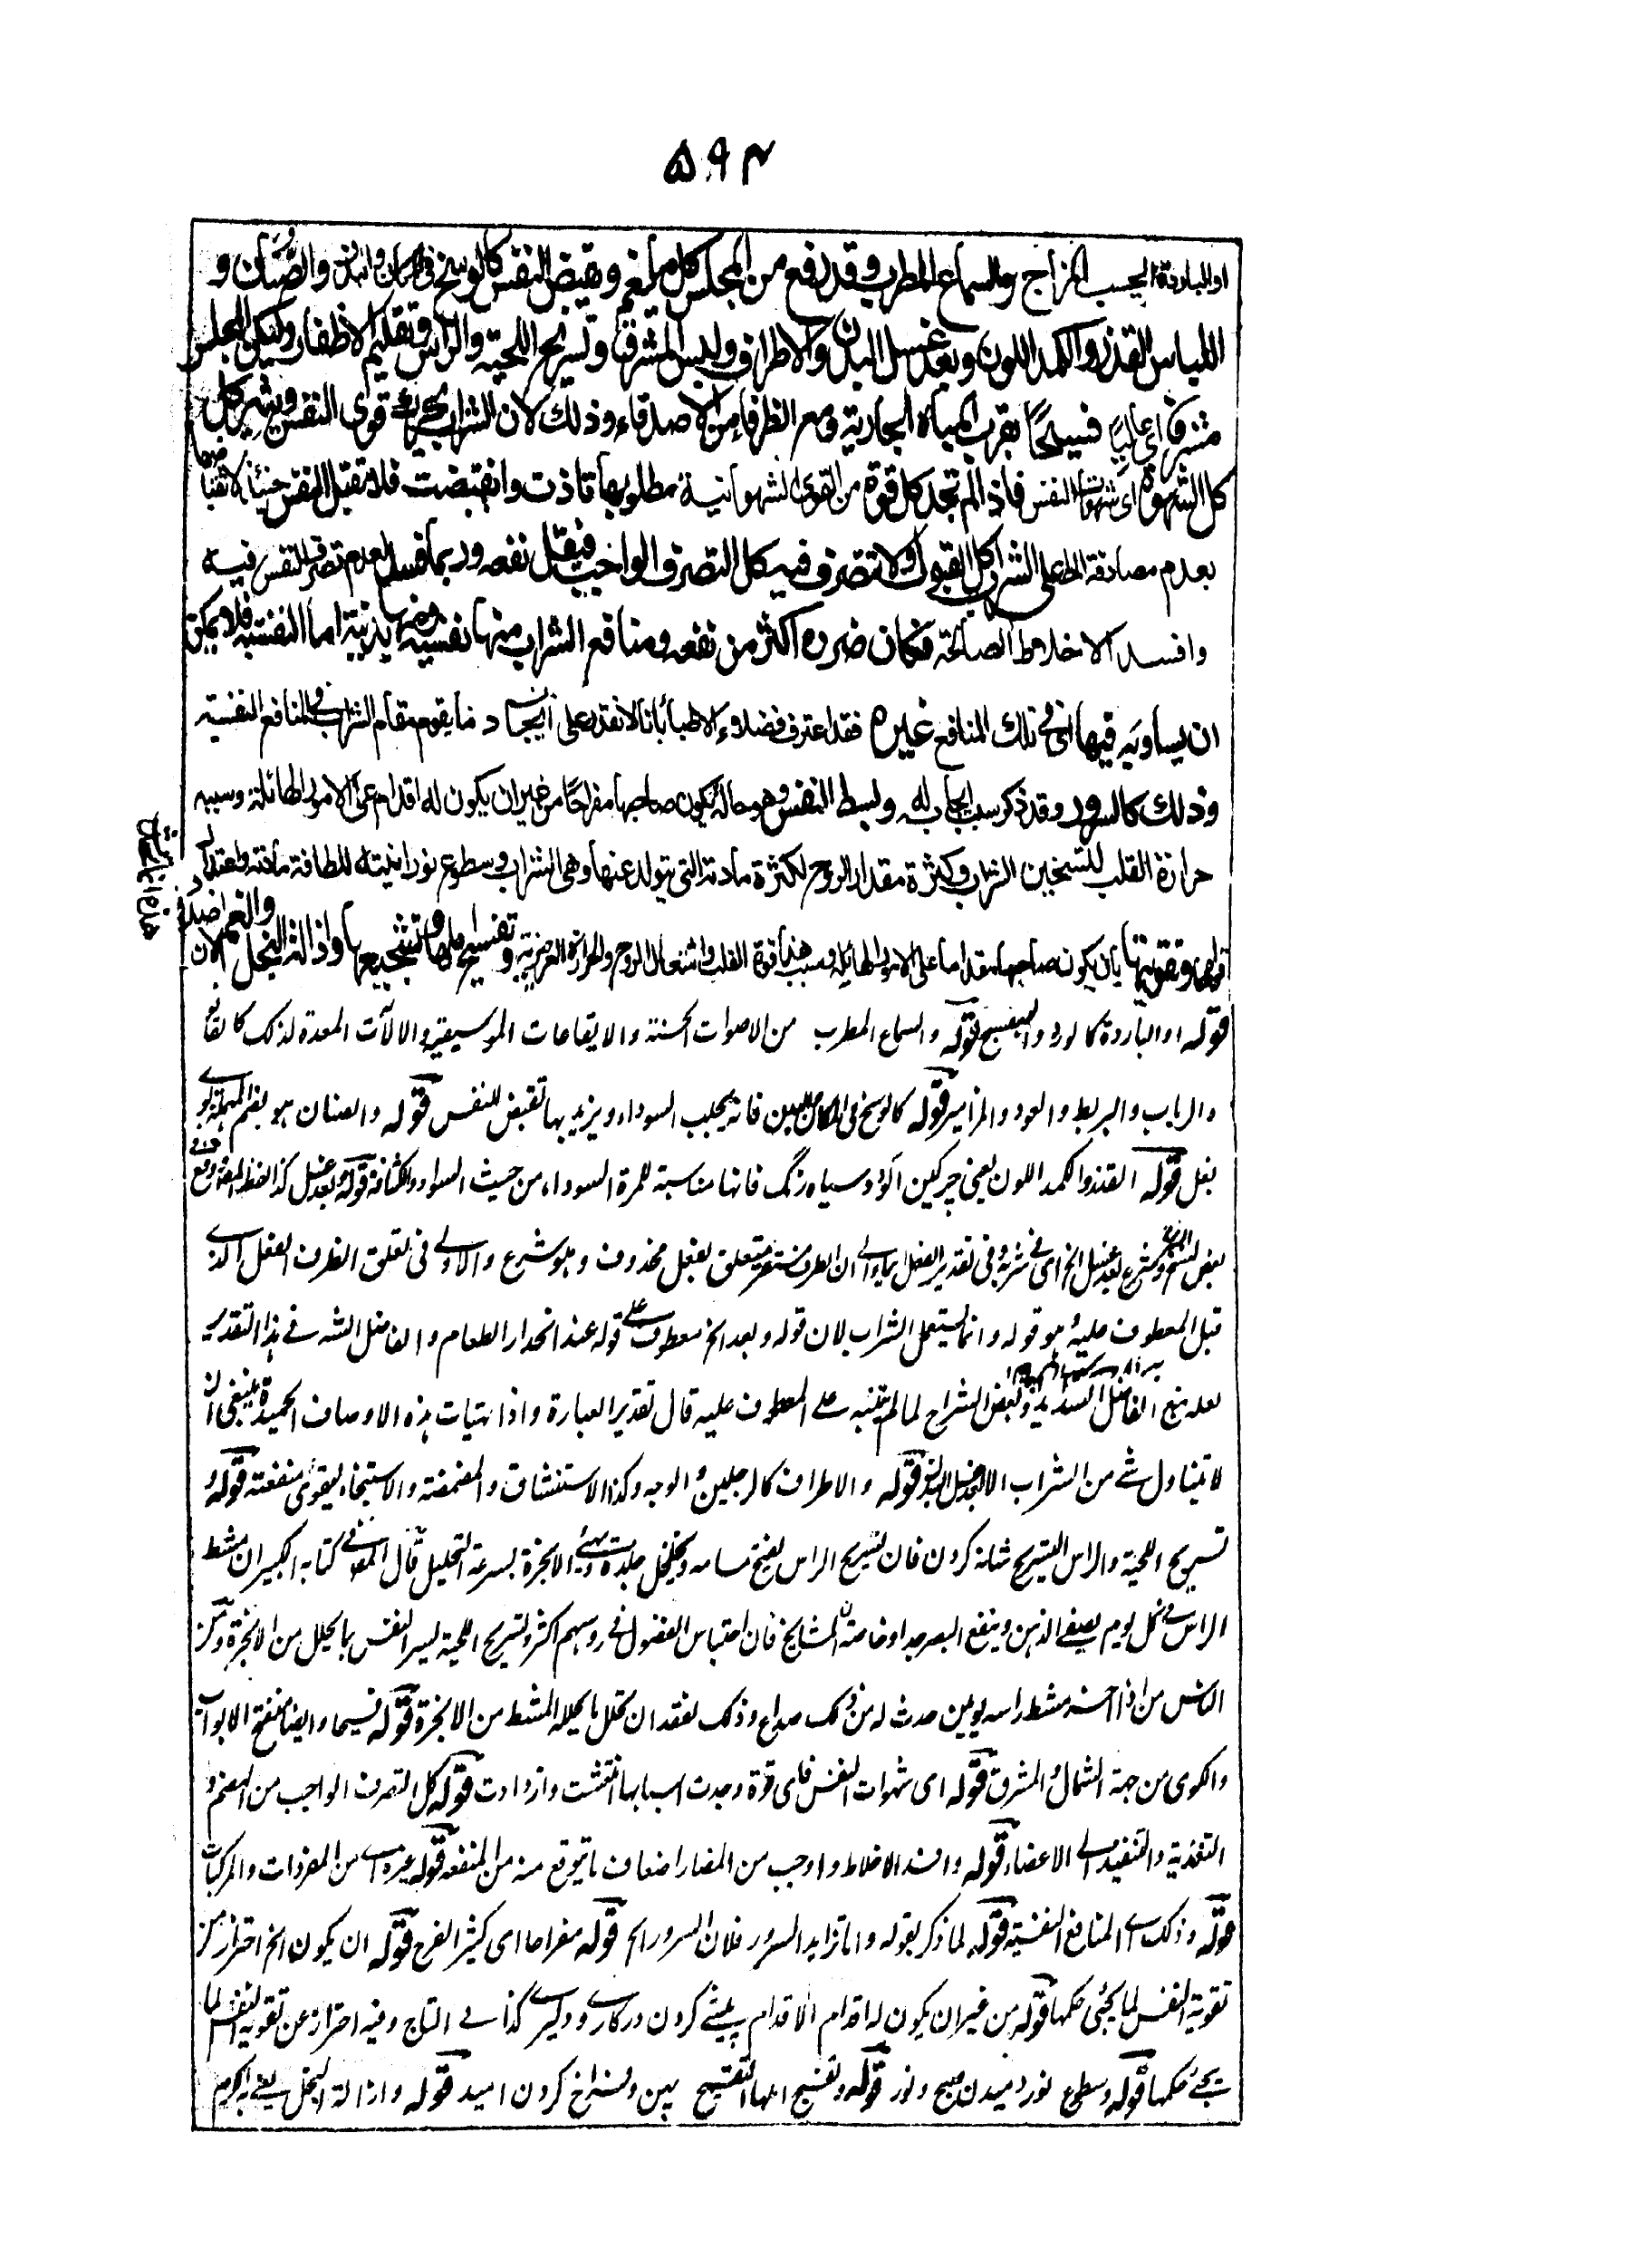 ۵۹۴
او الباردة بحسب المزاج والسماع المطرب وقد رفع من المجلس كل ما يغم ويقبض النفس كالوسخ في المكان والبدن والصنان و
اللباس القذر والكمد اللون وبعد غسل البدن والاطراف ولبس المشرقة وتسريح اللحية والراس وتقليم الاظفار وليكن المجلس
مشرفا اى عاليًا فسيحًا بقرب المياه الجارية ومع الظرفاء من الاصدقاء وذلك لان الشراب يحرك قوى النفس ويثير كل
كل الشهوة اى شهوات النفس فاذا لم تجد كل قوة من القوى الشهوانية مطلوبها تاذت وانقبضت فلا تقبل النفس حينئذ
بعدم مصادفة على الشراب كل القبول ولا تتصرف فيه كل التصرف الواجب فيقل نفعه وربما فسد لعدم تصرف النفس فيه
وافسد الاخلاط الصالحة فكان ضرره اكثر من نفعه ومنافع الشراب منها نفسية ومنها بدنية اما النفسية فلا يمكن
ان يساويه فيها اى في تلك المنافع غيره فقد اعترف فضلاء الاطباء بانا لا نقدر على ايجاد ما يقوم مقام الشراب في المنافع النفسية
وذلك كالسرور وقد ذكر سبب ايجابه له وبسط النفس وهو حالة يكون صاحبها مفراحًا من غير ان يكون له اقدام على الامور الهائلة وسببه
حرارة القلب للتسخين الشراب وكثرة مقدار الروح لكثرة مادتة التي يتولد عنها وهى الشراب وسطوع نورانيته للطافة مادته واعتدال
قوامه وتقويتها بان يكون صاحبها مقداما على الامور الهائلة وسبب هذا قوة القلب واشتعال الروح والحرارة الغريزية وتفسيح املها وتشجيعها وازالة البخل والغم لان
قوله او الباردة كالورد والبنفسج قوله والسماع المطرب من الاصوات الحسنة والايقاعات الموسيقية والالات المعدة لذلك
والرباب والبربط والعود والمزامير قوله كالوسخ في المكان فانه يجلب السوداء ويزيد بها تقبض النفس قوله والصنان هو بضم المهملة بوى
بغل قوله القذر والكمد اللون يعنى چركين آلوده سياه رنگ فانها مناسبة للمرة السوداء من حيث السواد والكثافة قوله وبعد غسل كذا لفظ المصنف وقع فى
بعض النسخ ويشرع بعد غسل الخ اى في شربه وفي تقدير الفعل ايماء الى ان الظرف مستقر متعلق بفعل محذوف وهو شرع والاولى فى تعلق الظرف الفعل الذى
قبل المعطوف عليه هو قوله وانما يستعمل الشراب لان قوله وبعد الخ معطوف على قوله عند انحدار الطعام والفاضل الشه في هذا التقدير
لعله تبع الفاضل السديد وبعض الشراح لما لم يتنبه على المعطوف عليه قال تقدير العبارة واذا تهيات هذه الاوصاف الحميدة ينبغى ان
لا يتناول شئ من الشراب الا بعد غسل البدن قوله والاطراف كالرجلين والوجه وكذا الاستنشاق والمضمضة والاستنجاء يقوى منفعته قوله و
تسريح اللحية والراس التسريح شانه كردن فان تسريح الراس يفتح مسامه ويخلخل جلدته ويهيئ الابخرة بسرعة التحليل قال فى كتابه الكبير ان مشط
الراس فى كل يوم يصفى الذهن وينفع البصر جدا وخاصة المشايخ فان احتباس الفضول في روسهم اكثر وتسريح اللحية يسر النفس بما يحلل من الابخرة ومن
الناس من اذا مشط راسه يومين حدث له من ذلك صداع وذلك لفقدان تحلل ما يحلله المشط من الابخرة قوله فسيحا وايضا منفتح الابواب
والكوى من جهة الشمال والمشرق قوله اى شهوات النفس فاى قوة وجدت اسبابها انتعشت وازدادت قوله كل التصرف الواجب من الهضم و
التغذية والتنفيذ الى الاعضاء قوله وافسد الاخلاط واوجب من المضار اضعاف ما يتوقع منه من المنفعة قوله غيره اى من المفردات والمركبات
قوله وذلك اى المنافع النفسية قوله لما ذكر بقوله وانما تزايد السرور فلان السرور الخ قوله مفراحا اى كثير الفرح قوله ان يكون الخ احتراز من
تقوية النفس لما يجئى حكمها قوله من غير ان يكون له اقدام الاقدام پيشى كردن در كارى ودليرى كذا فى التاج وفيه احتراز عن تقوية النفس لما
يجئ حكمها قوله وسطوع نور دميدن صبح ونور قوله وتفسيح املها التفسيح پهن وفراخ كردن اميد قوله وازالة البخل يعنى به الكرم